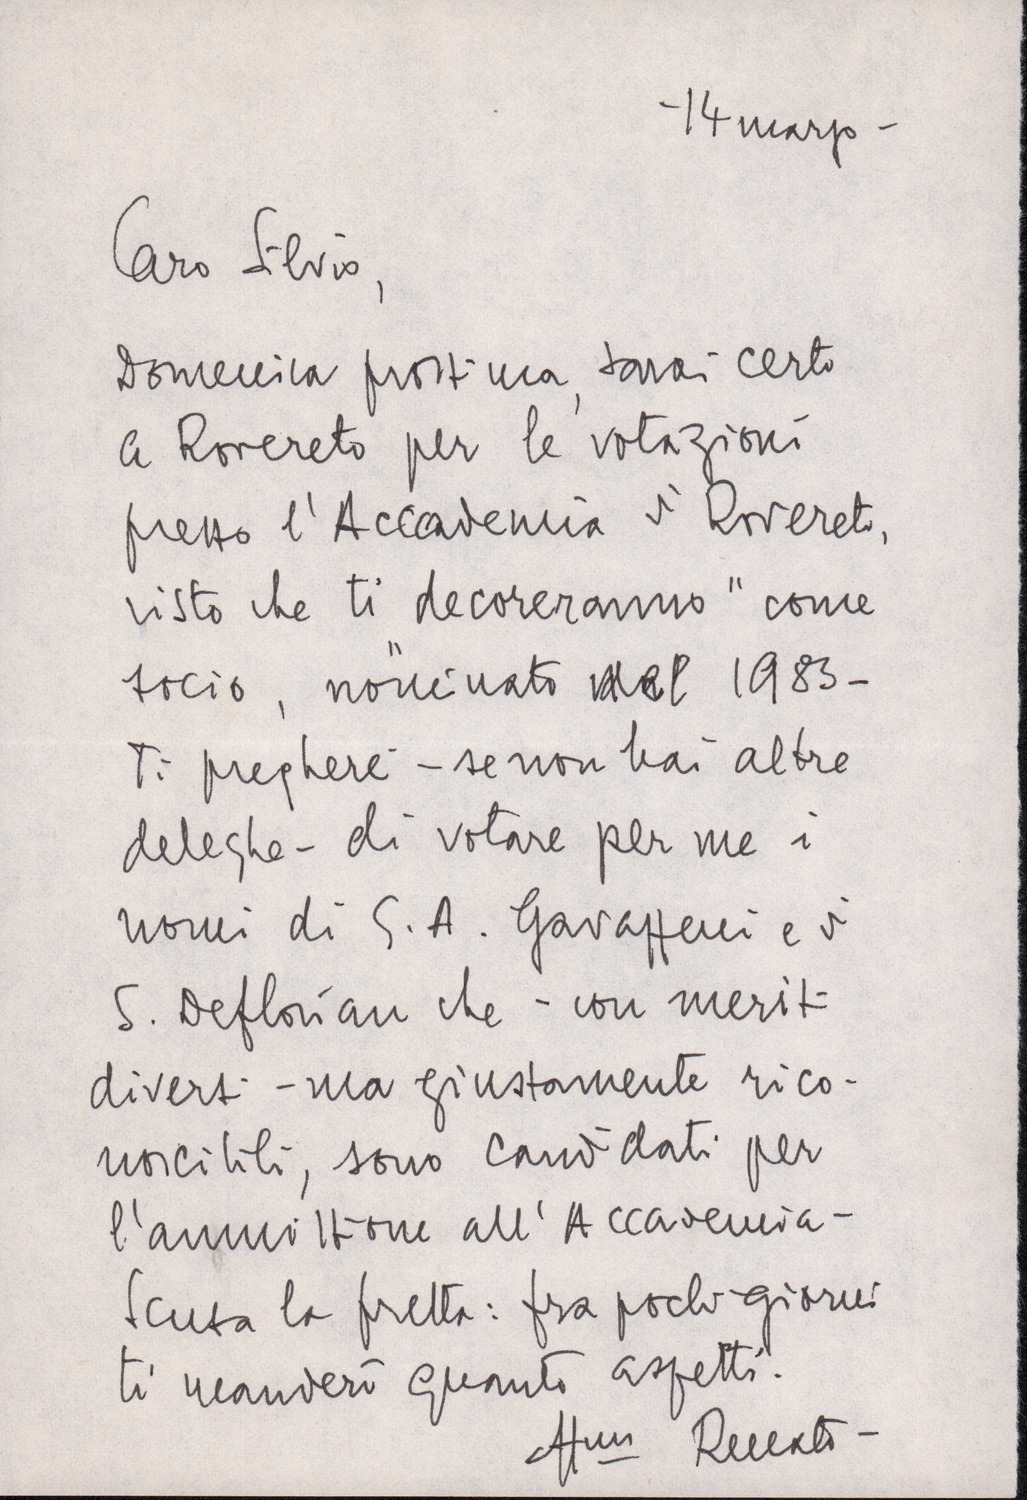 - 14 marzo -
Caro Silvio,
Domenica prossima, sarai certo
a Rovereto per le votazioni
presso l'Accademia di Rovereto,
visto che ti decoreranno " come
socio, nominato " nel 1983 -
Ti pregherei - se non hai altre
deleghe - di votare per me i
nomi di G. A. Gavazzeni e di
S. Deflorian che - con meriti
diversi - ma giustamente rico-
noscibili, sono candidati per
l'ammissione all'Accademia -
Scusa la fretta: fra pochi giorni
ti manderò quanto aspetti.
Renato -